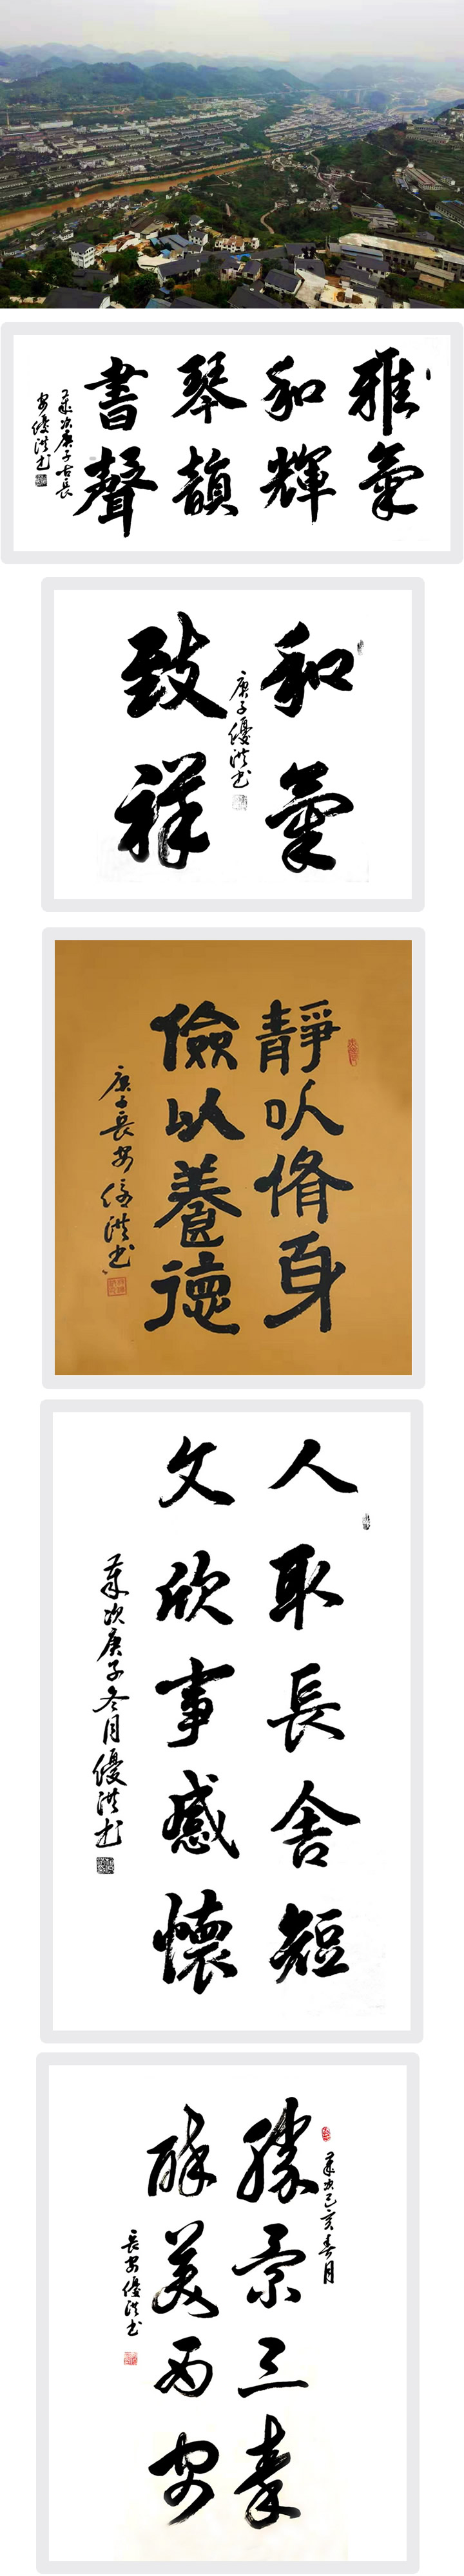 雅氣
和輝
琴韻
書聲
歲次庚子古長
安優洪书
和氣
庚子優洪书
致祥
靜以脩身
儉以養德
庚子長安優洪书
人取長舍短
文欣事感懷
歲次庚子冬月優洪书
歲次己亥春月
勝景三秦
醉美西安
長安優洪书